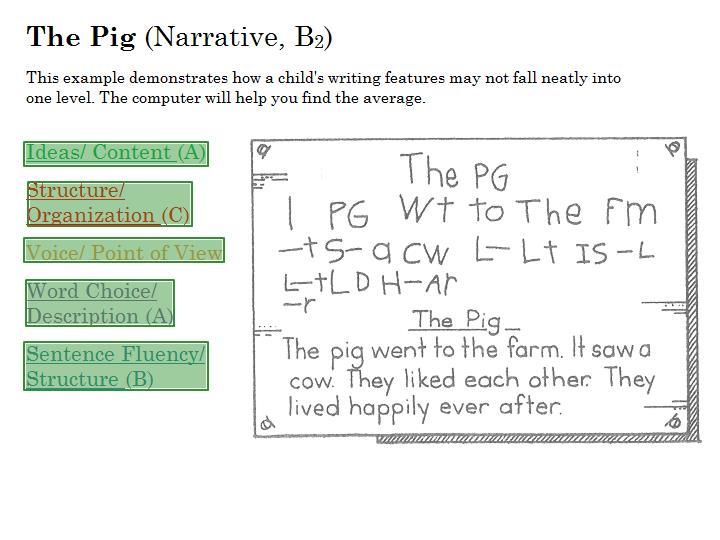 The Pig (Narrative, B2)
This example demonstrates how a child's writing features may not fall neatly into
one level. The computer will help you find the average.
Ideas/ Content (A)
Structure/
Organization (C)
Voice/ Point of View
Word Choice/
Description (A)
Sentence Fluency/
Structure (B)
The PG
I PG Wt to The Fm
–t S– a cw L– Lt IS –L
L–tL D H–Ar
–r
The Pig
The pig went to the farm. It saw a
cow. They liked each other. They
lived happily ever after.